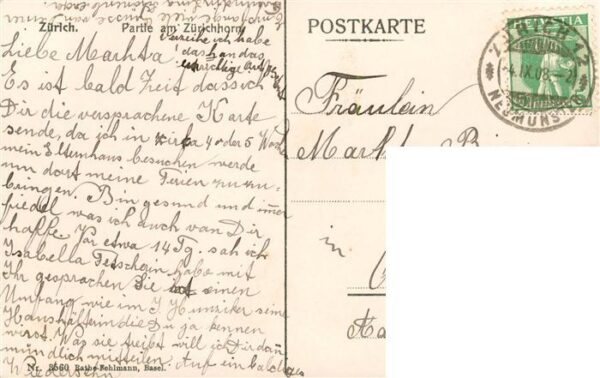 Zürich. Partie am Zürichhorn
Verzeihe ich habe
das an das
unrichtige Ort
Liebe Martha!
Es ist bald Zeit dass ich
Dir die versprochene Karte
sende, da ich in zirka 4 oder 5 Woch
mein Elternhaus besuchen werde
um dort meine Ferien zuzu-
bringen. Bin gesund und immer
fiedel was ich auch van Dir
haffe. Vor etwa 14 Tg. sah ich
Isabella habe mit
Ihr gesprochen Sie hat einen
Umfang wie im J. Hunziker seine
Haushälterin die Du ja kennen
wirst. Was sie treibt will ich Dir dann
mündlich mitteilen. Auf ein baldiges
Wiedersehn
Nr. 3560 Rathe-Fehlmann, Basel.
POSTKARTE
HELVETIA
ZÜRICH 12
-4.IX.08.-2
NEUMÜNS
Fräulein
in